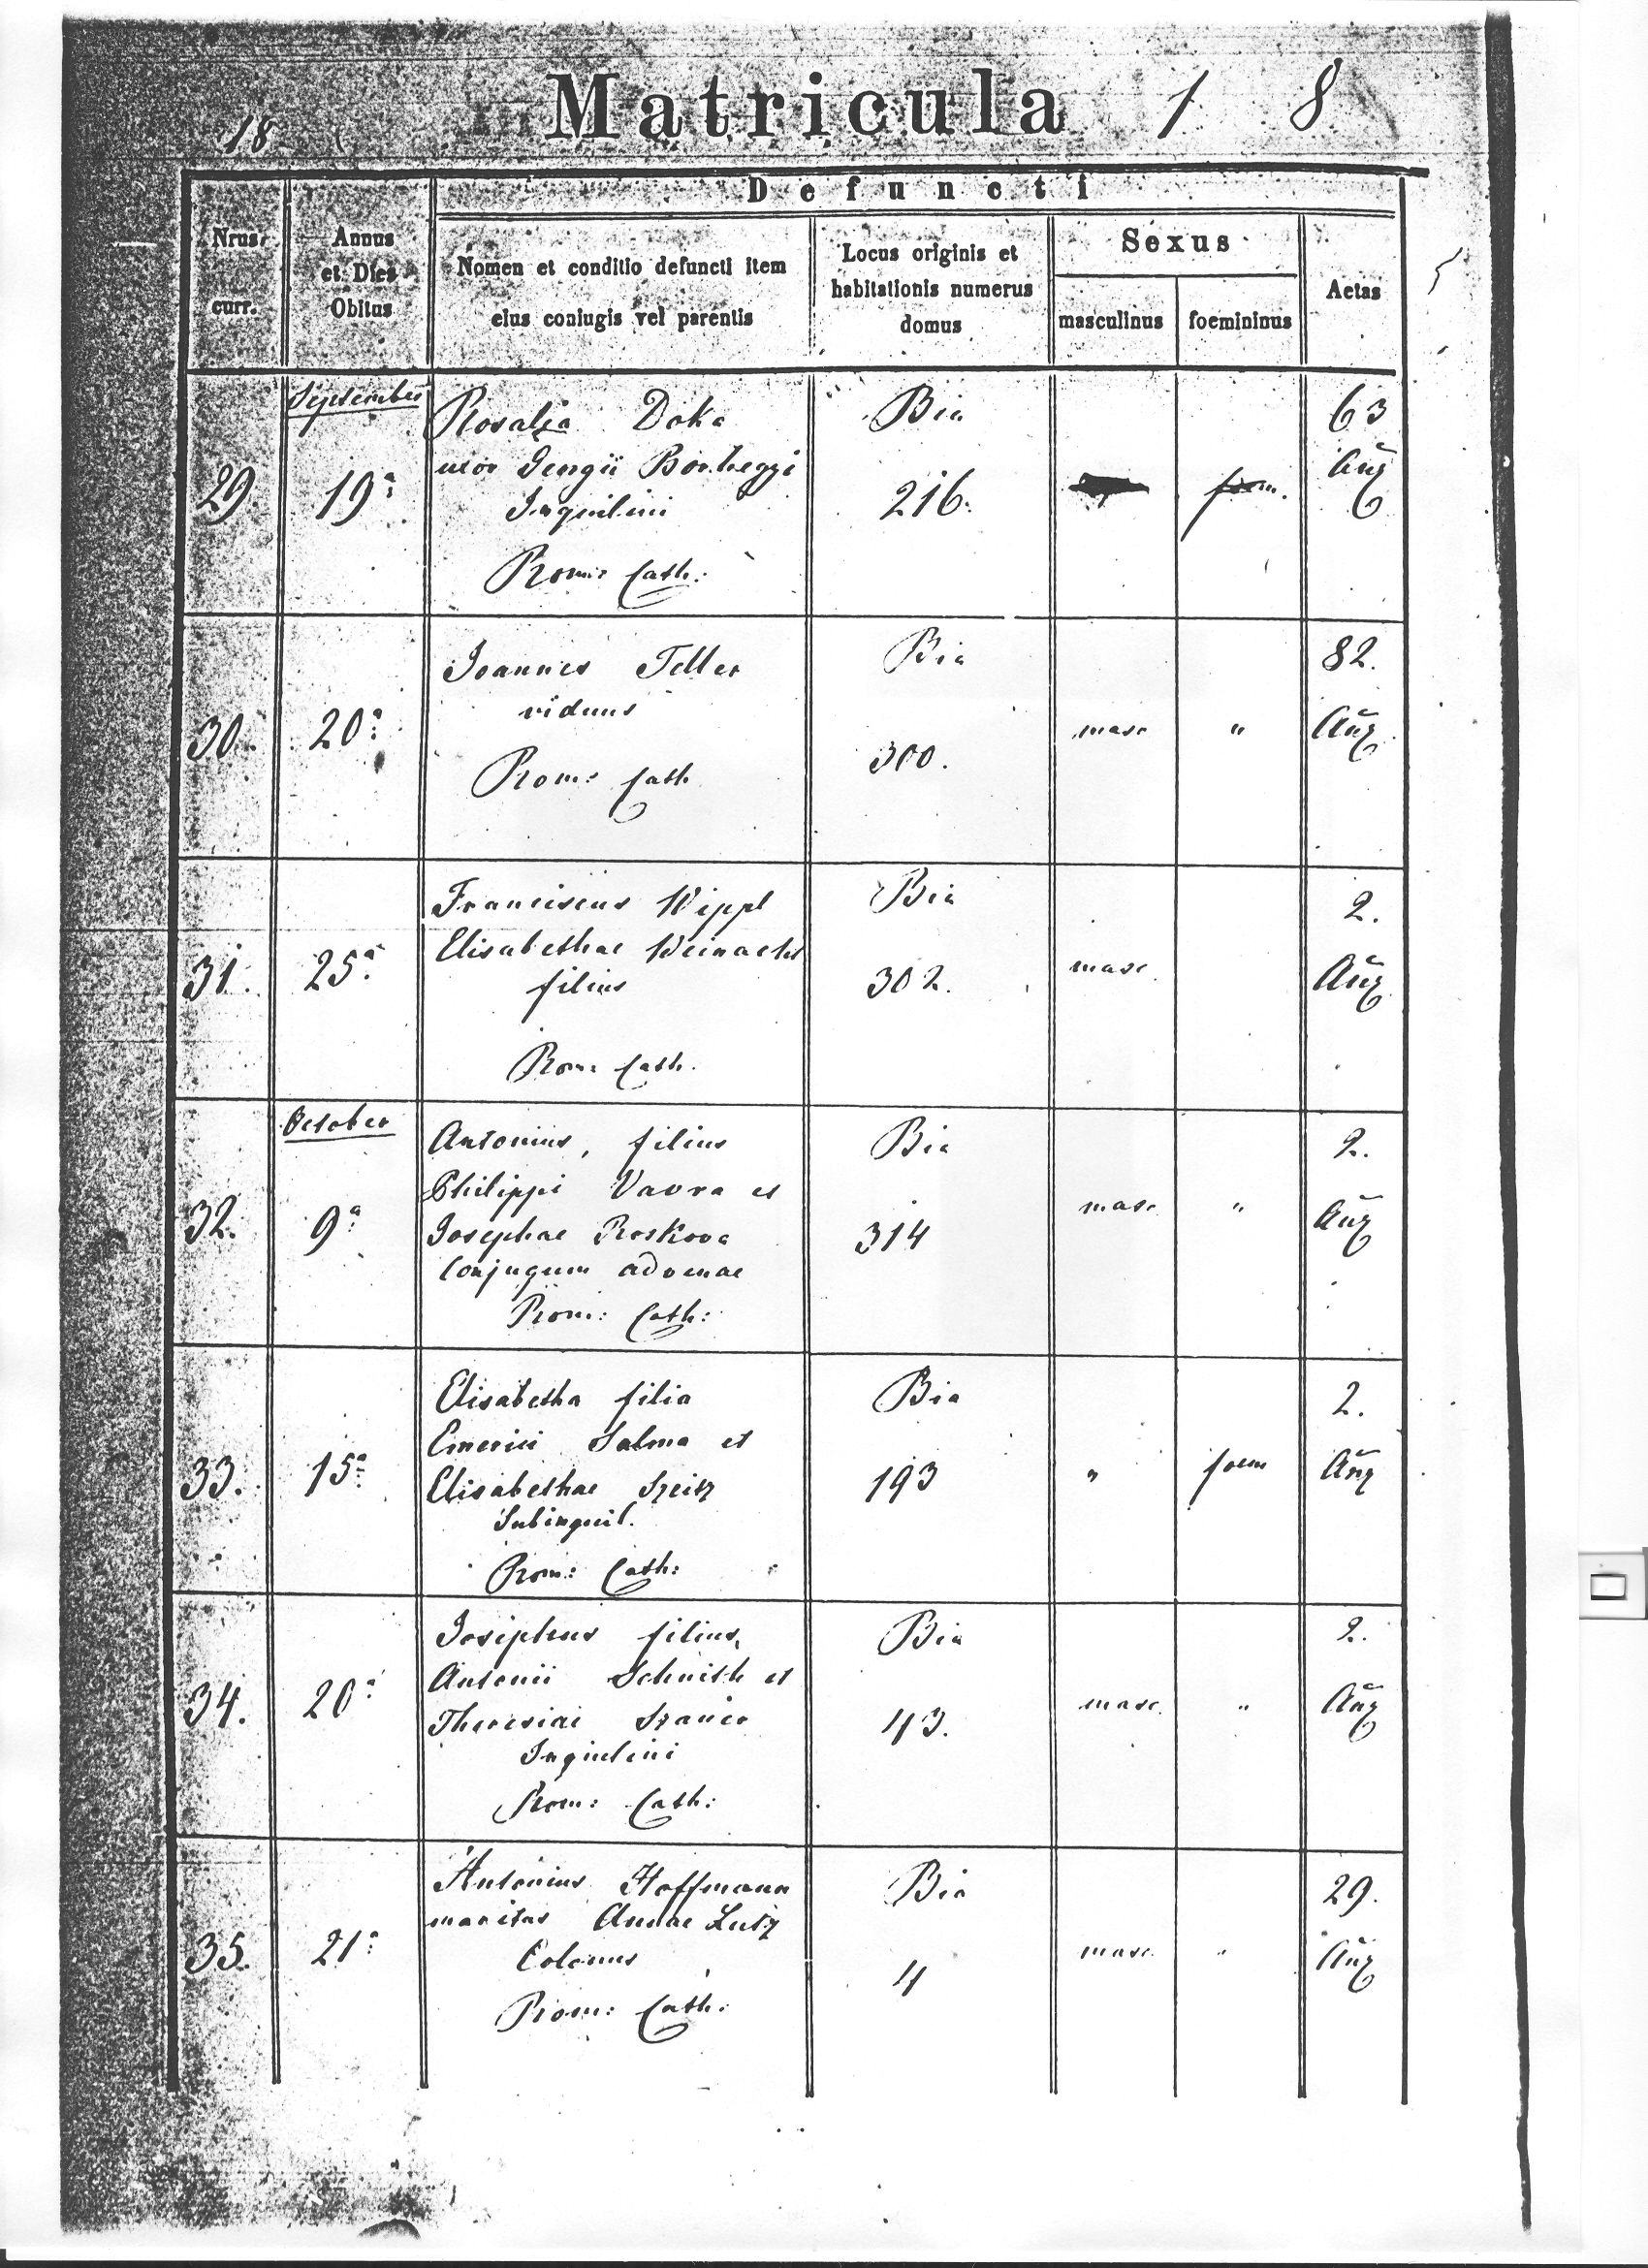 18
Matricula 1 8
Defuncti
Nrus curr.
Annus et Dies Obitus
Nomen et conditio defuncti item eius coniugis vel parentis
Locus originis et habitationis numerus domus
Sexus
masculinus
foemininus
Aetas
September
29. 19a
Rosalia Doka
uxor
Inquilini
Rom: Cath:
Bia
216.
foem.
63
Añ
30. 20a
Joannes Teller
viduus
Rom: Cath
Bia
300.
masc "
82.
Añ
31. 25a
Franciscus Wippl
Elisabethae
filius
Rom: Cath.
Bia
302.
masc
2.
Añ
October
32. 9a
Antonius, filius
Philippi Vavra et
Josephae Roskova
Conjugum advenae
Rom: Cath:
Bia
314
masc "
2.
Añ
33. 15a
Elisabetha filia
Emerici Salma et
Elisabethae Szeitz
Subinquil.
Rom: Cath:
Bia
193
" foem
2.
Añ
34. 20a
Josephus filius
Antonii et
Theresiae
Inquilini
Rom: Cath:
Bia
43.
masc. "
2.
Añ
35. 21a
Antonius Hoffmann
maritus Annae Lutz
Colonus
Rom: Cath:
Bia
4
masc. "
29.
Añ